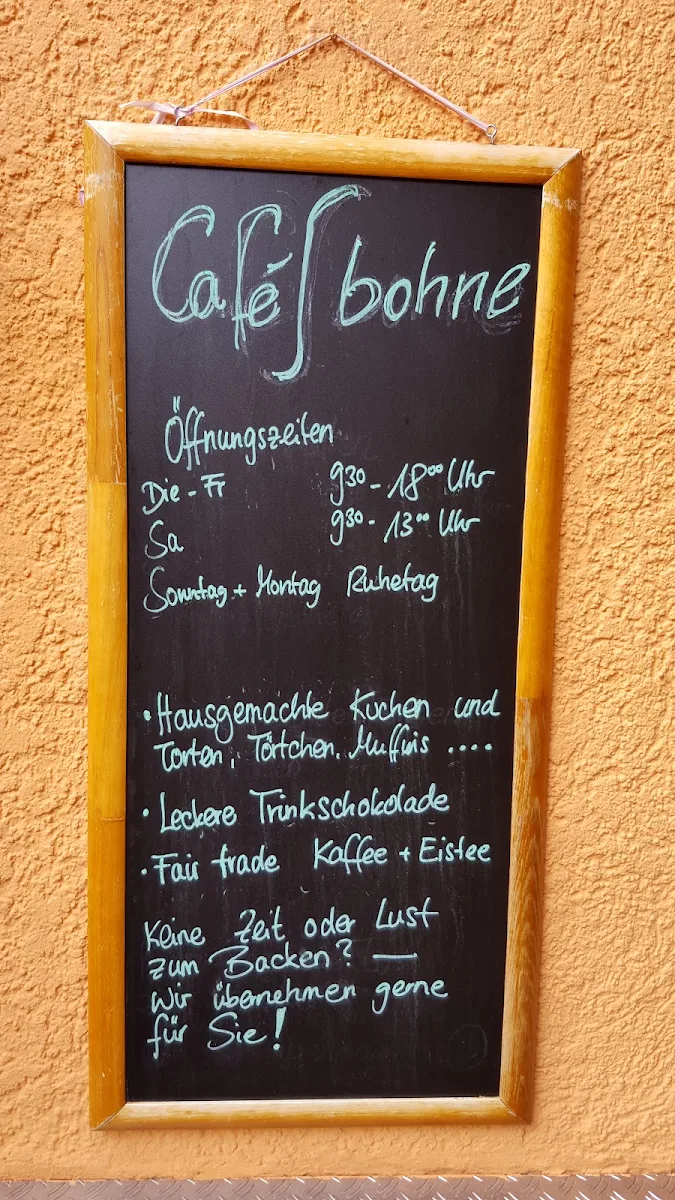 Café bohne
Öffnungszeiten
Die - Fr 9³⁰ - 18⁰⁰ Uhr
Sa 9³⁰ - 13⁰⁰ Uhr
Sonntag + Montag Ruhetag
• Hausgemachte Kuchen und
Torten, Törtchen, Muffins ....
• Leckere Trinkschokolade
• Fair trade Kaffee + Eistee
Keine Zeit oder Lust
zum Backen? —
wir übernehmen gerne
für Sie!